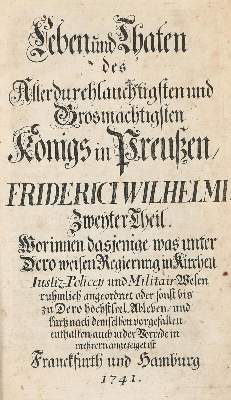 Leben und Thaten
des
Allerdurchlauchtigsten und
Grosmachtigsten
Königs in Preußen,
FRIDERICI WILHELMI
Zweyter Theil.
Worinnen dasjenige was unter
Dero weisen Regierung in Kirchen
Justiz-Policey und Militair-Wesen
rühmlich angeordnet oder sonst bis
zu Dero höchstseel. Ableben, und
kurtz nach demselben vorgefallen
enthalten, auch in der Vorrede ein
mehrers angezeiget ist
Franckfurth und Hamburg
1741.